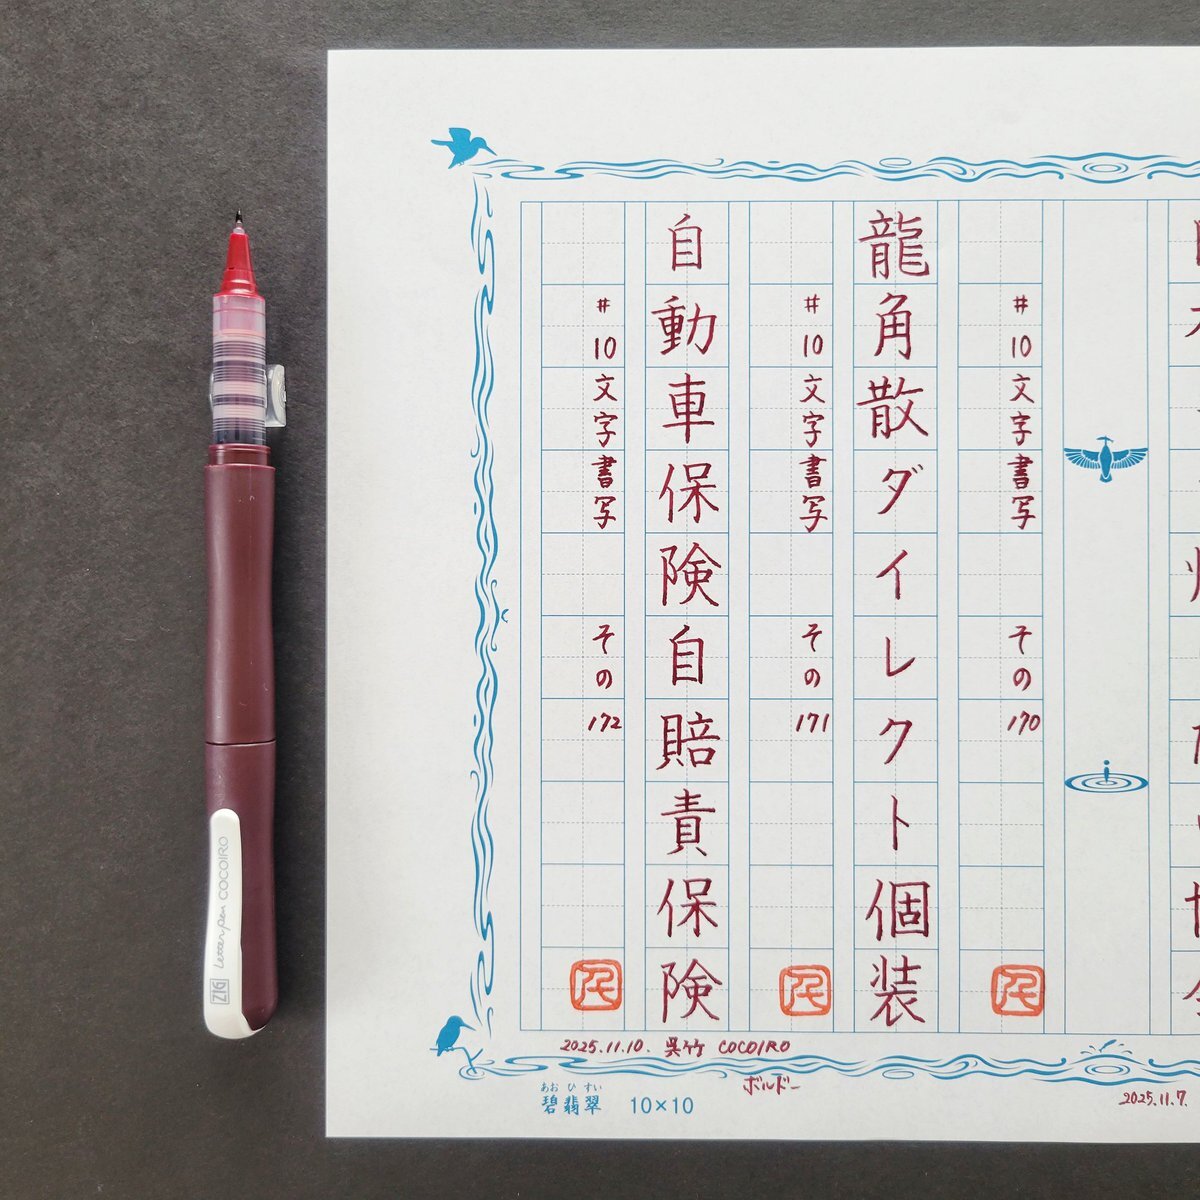 #10文字書写 その170
龍角散ダイレクト個装
#10文字書写 その171
自動車保険自賠責保険
#10文字書写 その172
2025.11.10. 呉竹 COCOIRO
ボルドー
2025.11.7.
あおひすい
碧翡翠 10×10
ZIG Letter pen COCOIRO